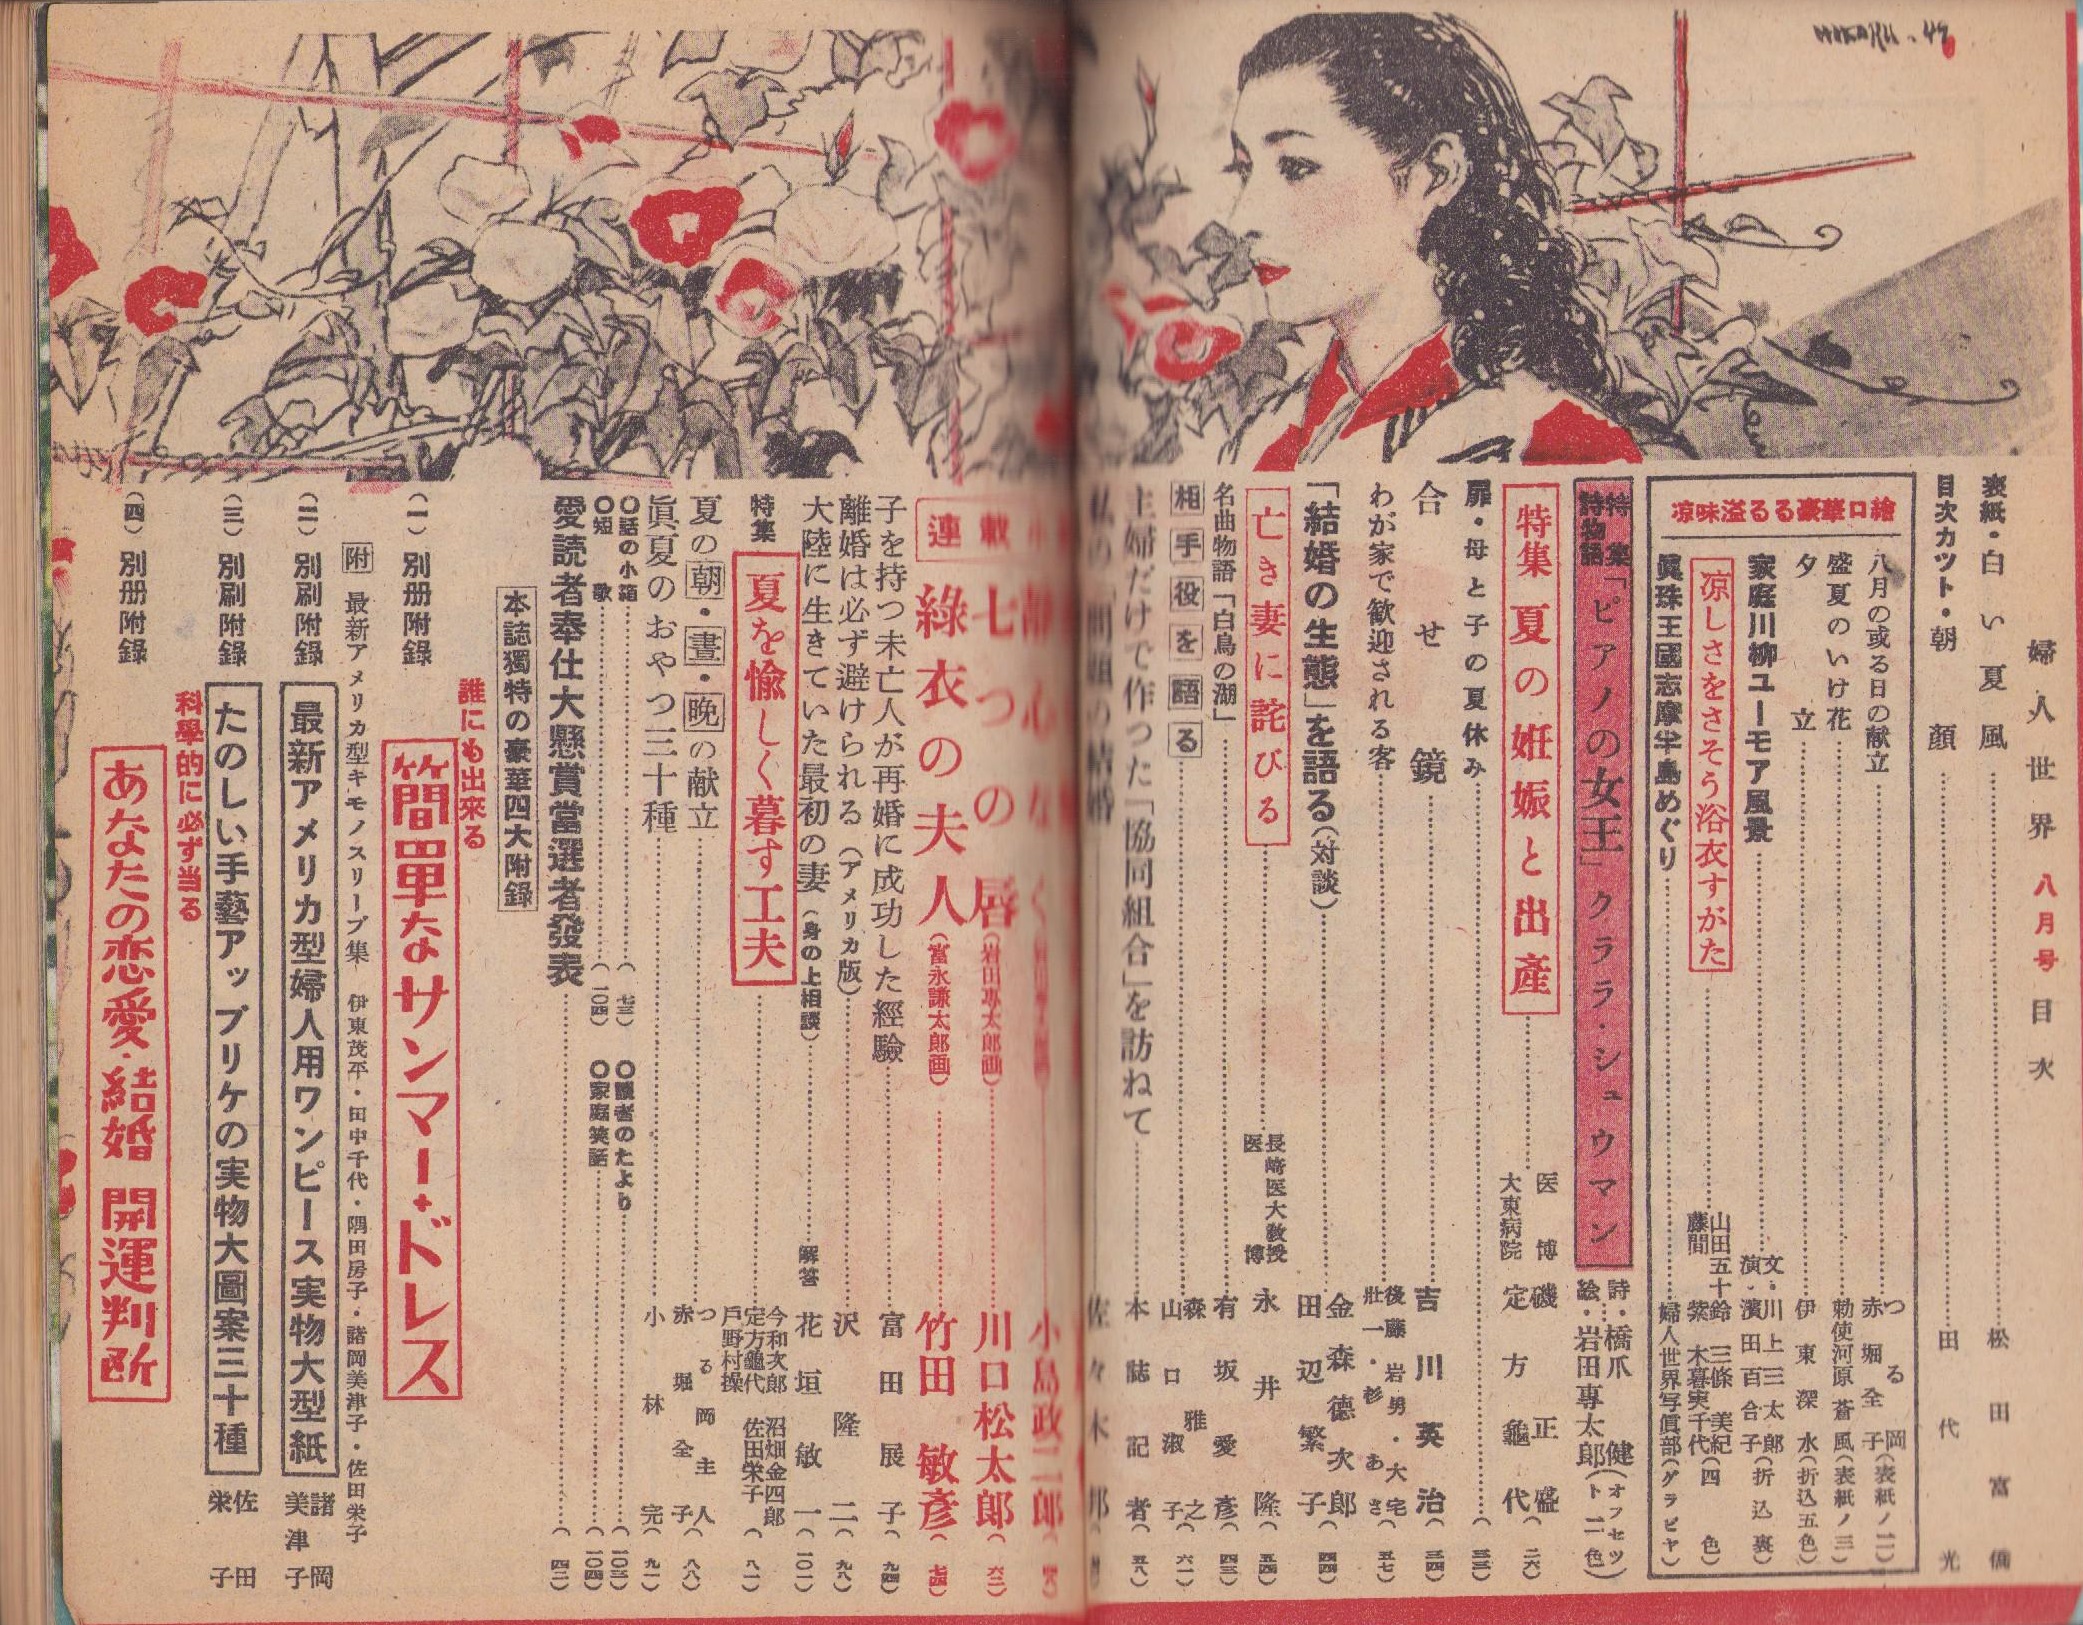 HIKARU. 49
婦人世界 八月号 目次
表紙・白い夏風 松田富僑
目次カット・朝顔 田代光
涼味溢るる豪華口繪
八月の或る日の献立 つる岡 赤堀全子(表紙ノ二)
盛夏のいけ花 勅使河原蒼風(表紙ノ三)
夕立 伊東深水(折込五色)
家庭川柳ユーモア風景 文・川上三太郎 演・濱田百合子(折込裏)
涼しさをさそう浴衣すがた 山田五十鈴 三條美紀 藤間紫 木暮実千代(四色)
眞珠王國志摩半島めぐり 婦人世界写眞部(グラビヤ)
特集詩物語「ピアノの女王」クララ・シュウマン 詩…橋爪健 絵・岩田専太郎(オフセット二色)
特集 夏の妊娠と出産 医博 磯正盛 大東病院 定方龜代(二六)
扉・母と子の夏休み(三三)
合せ鏡 吉川英治(三四)
わが家で歓迎される客 後藤岩男・大宅壯一・杉あさ(五七)
「結婚の生態」を語る(対談) 金森德次郎 田辺繁子(四四)
亡き妻に詫びる 長崎医大教授 医博 永井隆(五四)
名曲物語「白鳥の湖」 有坂愛彦(四三)
相手役を語る 森雅之 山口淑子(六一)
主婦だけで作った「協同組合」を訪ねて 本誌記者(五八)
私の 結婚 佐々木邦
小島政二郎
連載 七つの唇(岩田専太郎画) 川口松太郎(六二)
綠衣の夫人(富永謙太郎画) 竹田敏彦(七四)
子を持つ未亡人が再婚に成功した經驗 富田展子(九四)
離婚は必ず避けられる(アメリカ版) 沢隆二(九八)
大陸に生きていた最初の妻(身の上相談) 解答 花垣敏一(一〇一)
特集 夏を愉しく暮す工夫 今和次郎 沼畑金四郎 定方龜代 佐田栄子 戸野村操(八一)
夏の朝・晝・晩の献立 つる岡主人 赤堀全子(八八)
眞夏のおやつ三十種 小林完(九一)
〇話の小箱(七三) 〇讀者のたより(一〇三)
〇短歌(一〇四) 〇家庭笑話(一〇四)
愛読者奉仕大懸賞當選者發表(四二)
本誌獨特の豪華四大附錄
(一)別册附錄 誰にも出來る 簡單なサンマー・ドレス
附 最新アメリカ型キモノスリーブ集 伊東茂平・田中千代・隅田房子・諸岡美津子・佐田栄子
(二)別刷附錄 最新アメリカ型婦人用ワンピース実物大型紙 諸岡美津子
(三)別刷附錄 たのしい手藝アップリケの実物大圖案三十種 佐田栄子
(四)別册附錄 科學的に必ず当る あなたの恋愛・結婚 開運判断